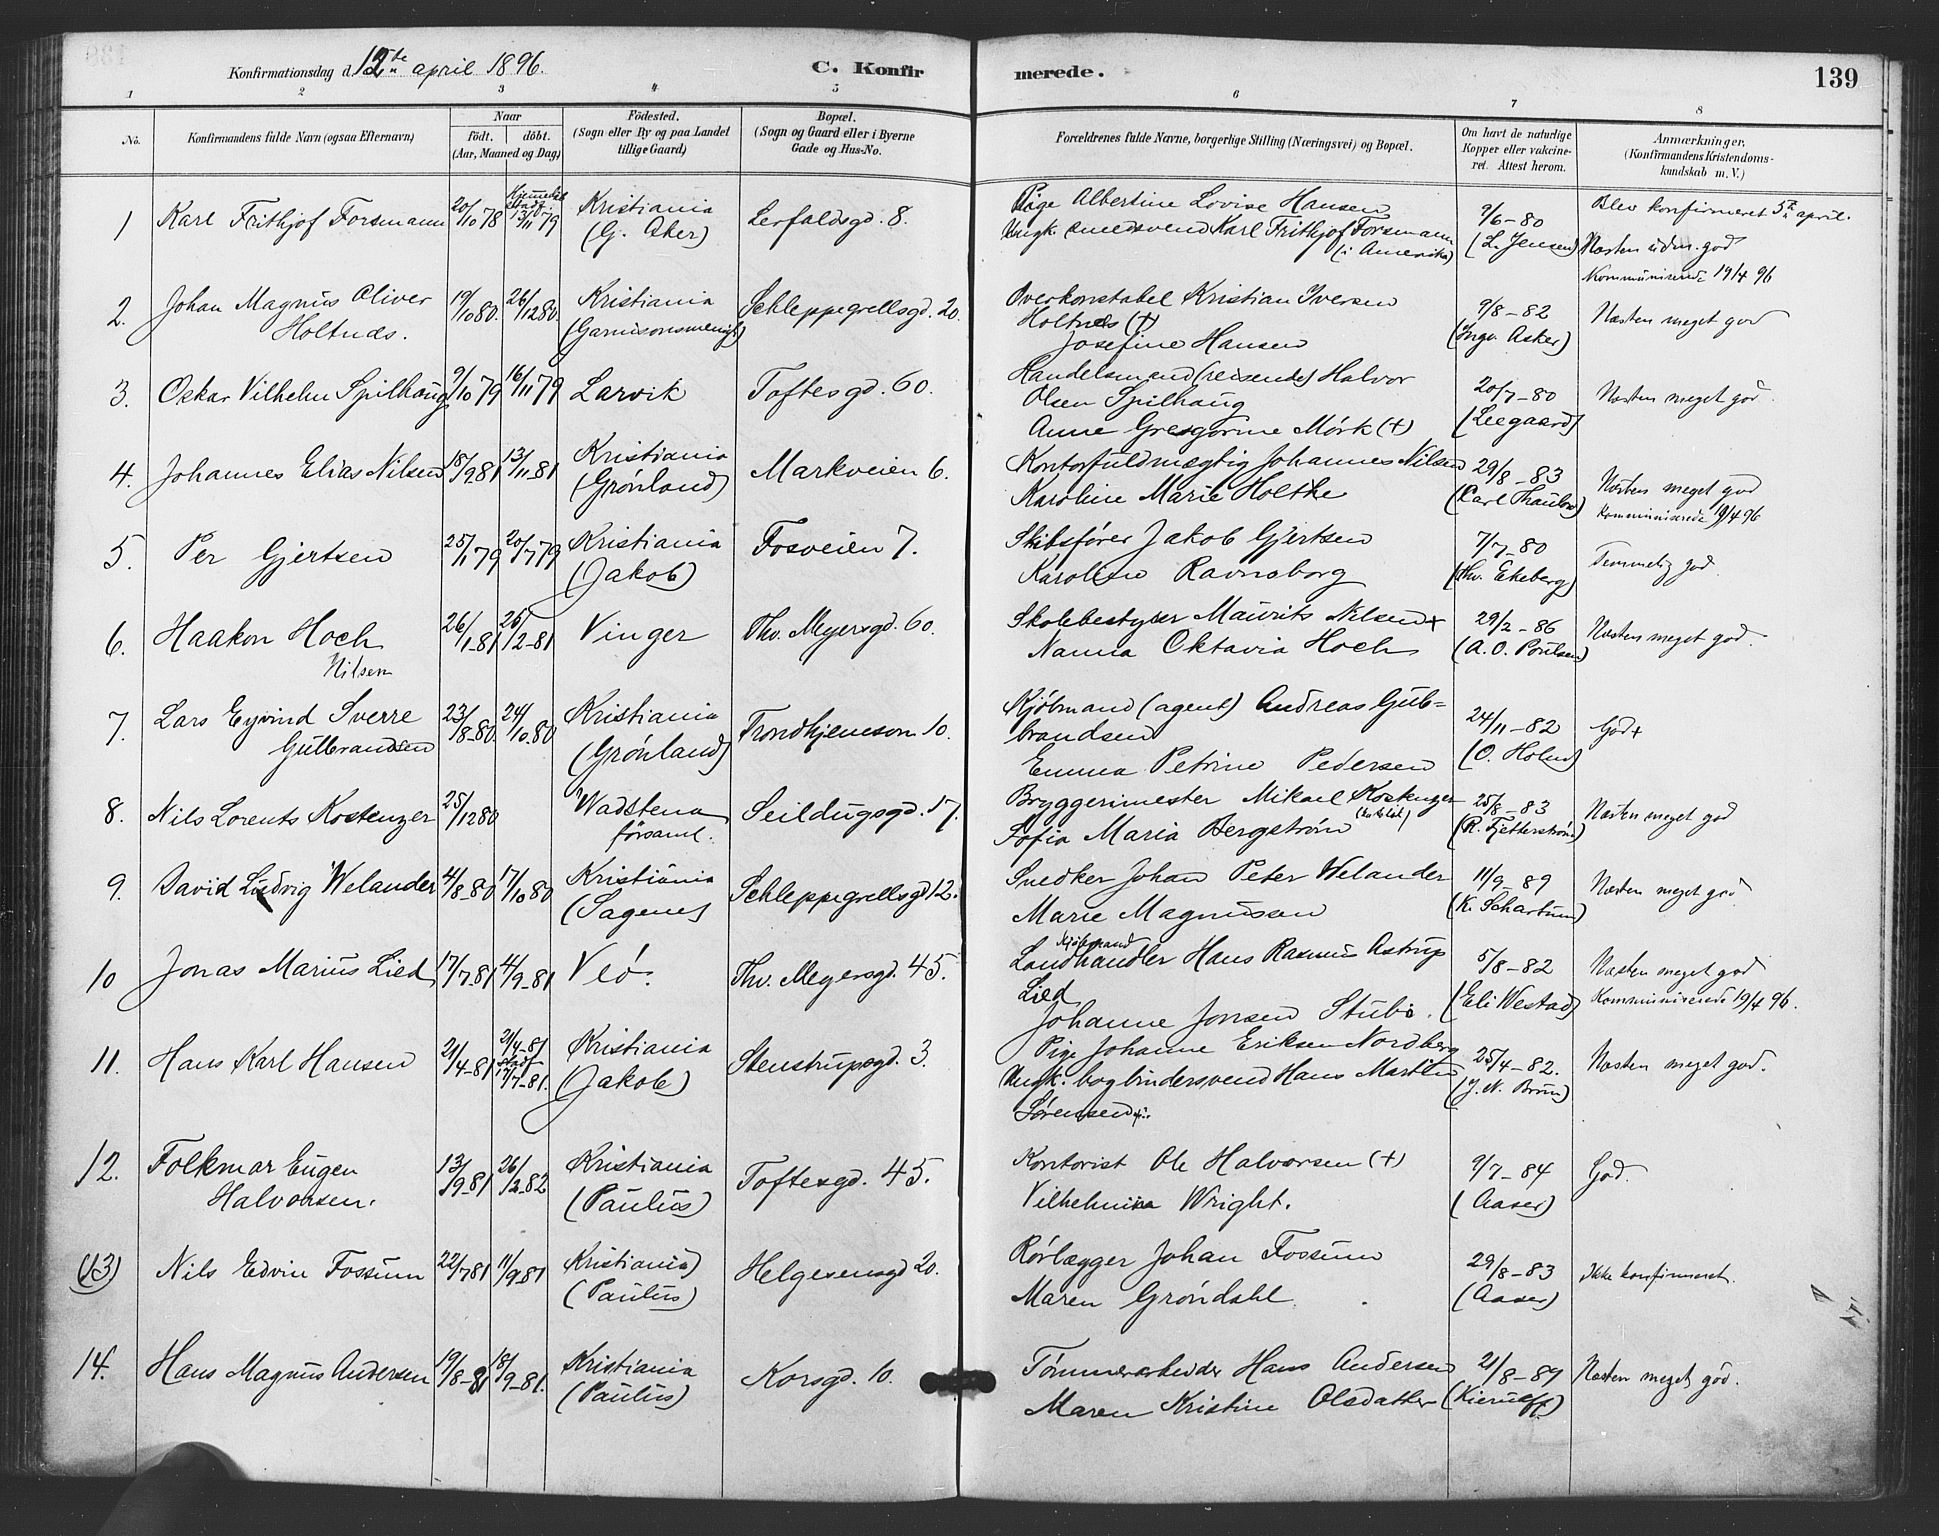 Konfirmationsdag d. 12te april 1896.
C. Konfirmerede.
139
1 2 3 4 5 6 7 8
No.
Konfirmandens fulde Navn (ogsaa Efternavn)
Naar
födt. döbt.
(Aar, Maaned og Dag)
Födested.
(Sogn eller By og paa Landet
tillige Gaard)
Bopæl.
(Sogn og Gaard eller i Byerne
Gade og Hus-No.
Forældrenes fulde Navne, borgerlige Stilling (Næringsvei) og Bopæl.
Om havt de naturlige
Kopper eller vakcine-
ret. Attest herom.
Anmærkninger.
(Konfirmandens Kristendoms-
kundskab m. V.)
1 Karl Frithjof Forsmann 20/10 78 Hjemmedøbt stadf. 13/11 79 Kristiania (G. Aker) Lerfaldsgd. 8.
Pige Albertine Lovise Hansen
Ungk. smedsvend Karl Frithjof Forsmann
(i Amerika)
9/6-80
(L. Jensen)
Blev konfirmeret 5te april.
Næsten udm. god
Kommuniserede 19/4 96
2. Johan Magnus Oliver
Holtnæs.
19/10 80. 26/12 80. Kristiania
(Garnisonsmenigh.)
Schleppegrellsgd. 20.
Overkonstabel Kristian Iversen
Holtnæs (+)
Josefine Hansen
9/8-82
(Ingv. Asker)
Næsten meget god
3. Oskar Vilhelm Spilhaug 9/10 79 16/11 79 Larvik Toftesgd. 60.
Handelsmand (reisende) Halvor
Olsen Spilhaug
Anne Gresgorine Mørk (+)
20/7-80
(Leegaard)
Næsten meget god
4. Johannes Elias Nilsen 18/9 81 13/11-81 Kristiania
(Grønland)
Markveien 6.
Kontorfuldmægtig Johannes Nilsen
Karoline Marie Holtke
29/8-83
(Carl Thaulow)
Næsten meget god
Kommuniserede 19/4 96
5. Per Gjertsen 25/1 79 20/7 79 Kristiania
(Jakob)
Fosveien 7.
Skibsfører Jakob Gjertsen
Karoline Ravnsborg
7/7-80
(Thv. Ekeberg)
Temmelig god
6. Haakon Hoch
Nilsen
26/1-81 25/2-81 Vinger Thv. Meyersgd. 60.
Skolebestyrer Maurits Nilsen +
Nanna Oktavia Hoch
29/2-86
(A. O. Poulsen)
Næsten meget god.
7. Lars Eyvind Sverre
Gulbrandsen
23/8-80. 24/10 80 Kristiania
(Grønland)
Trondhjemsvn 10.
Kjøbmand (agent) Andreas Gul-
brandsen
Emma Petrine Pedersen
24/11-82
(O. Holm)
God +
8. Nils Lorents Kostenzer 25/12 80 Wadstena
församl.
Seildugsgd. 17.
Bryggerimester Mikael Kostenzer
(katolik)
Sofia Maria Bergstrøm
25/8-83
(R. Fjetterstrøm)
Næsten meget god
9. David Ludvig Welander 4/8-80 17/10 80 Kristiania
(Sagene)
Schleppegrellsgd 12.
Snedker Johan Peter Welander
Marie Magnussen
11/9-89
(K. Schartum)
Næsten meget god
10 Jonas Marius Lied 17/7 81 4/9-81 Veø. Thv. Meyersgd. 45.
Kjøbmand
Landhandler Hans Rasmus Astrup
Lied
Johanne Jonsen Stubø.
5/8-82
(Eli Westad)
Næsten meget god
Kommuniserede 19/4 96.
11. Hans Karl Hansen 21/4-81 21/4-81 stadf. 17/7-81. Kristiania
(Jakob)
Stenstrupsgd. 3.
Pige Johanne Eriksen Nordberg
Ungk. bogbindersvend Hans Martin
Sørensen +
25/4-82.
(J. N. Brun)
Næsten meget god.
12. Folkmar Eugen
Halvorsen.
13/9-81 26/2-82 Kristiania
(Paulus)
Toftesgd. 45.
Kontorist Ole Halvorsen (+)
Vilhelmina Wright.
9/7-84
(Aaser)
God.
(13) Nils Edvin Fossum 22/7 81 11/9-81 Kristiania
(Paulus)
Helgesensgd 20.
Rørlægger Johan Fossum
Maren Grøndahl
29/8-83
(Aaser)
Ikke konfirmeret.
14. Hans Magnus Andersen 19/8-81 18/9-81. Kristiania
(Paulus)
Korsgd. 10.
Tømmerarbeider Hans Andersen
Maren Kristine Olsdatter
21/8-89
(Kierulff)
Næsten meget god.